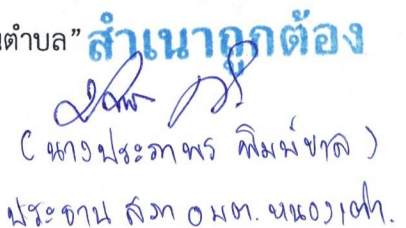 นตำบล” สำเนาถูกต้อง
(นางประภาพร พิมพ์ยาล)
ประธาน สภา อบต. หนองเต่า.